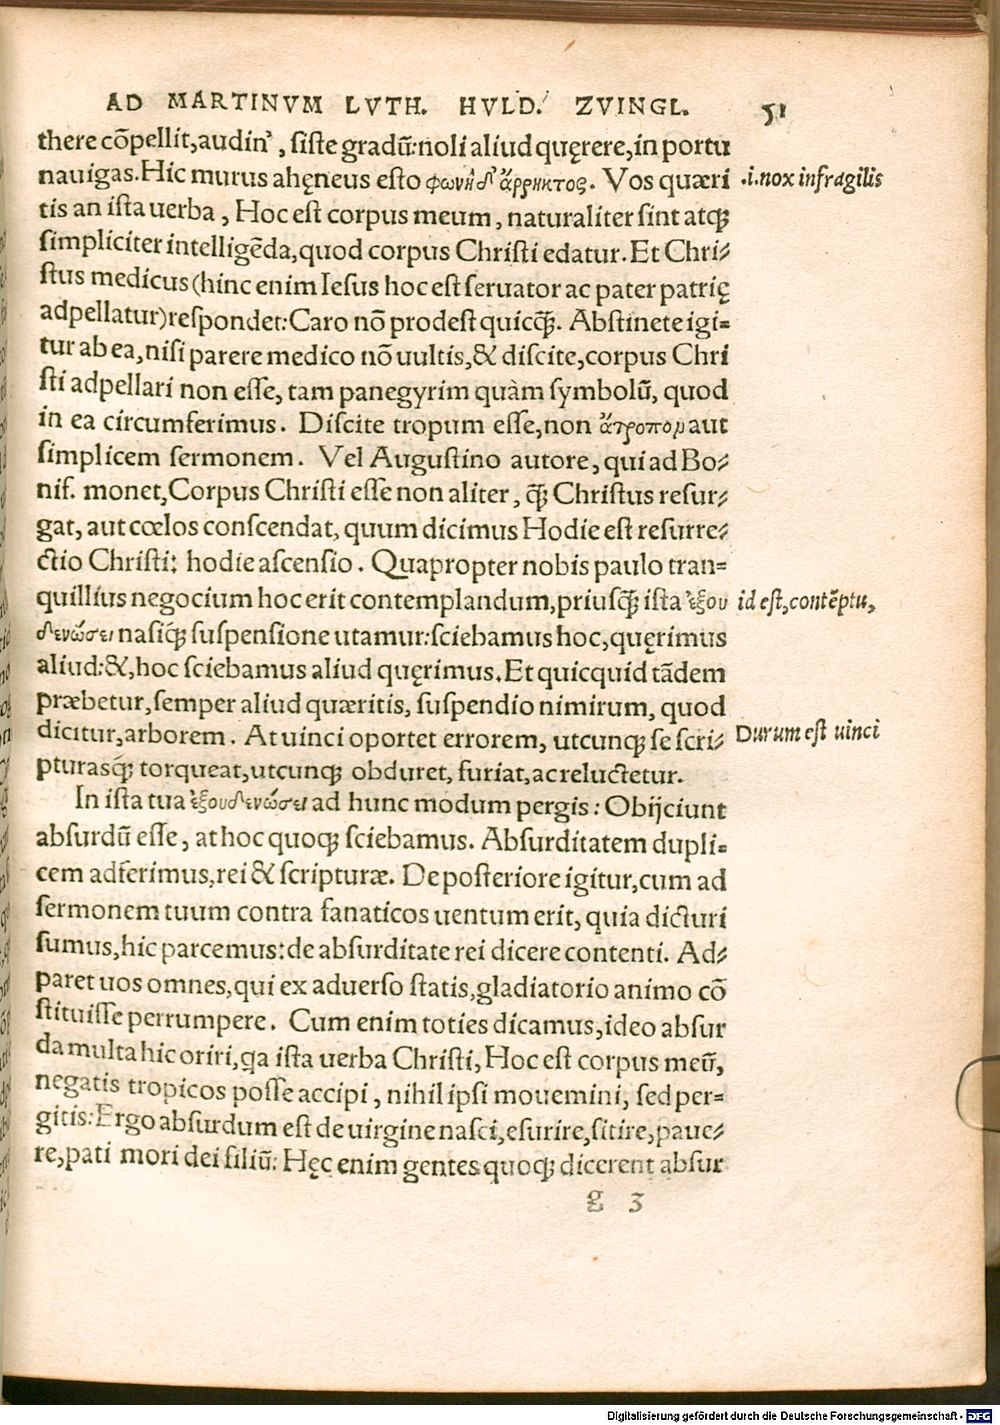 AD MARTINVM LVTH. HVLD. ZVINGL. 51
there cõpellit, audin', siste gradũ: noli aliud quęrere, in portu
nauigas. Hic murus ahęneus esto φωνὴ δ' ἄῤῥηκτος. Vos quæri
.i. nox infragilis
tis an ista uerba, Hoc est corpus meum, naturaliter sint atq̃
simpliciter intelligẽda, quod corpus Christi edatur. Et Chri-
stus medicus (hinc enim Iesus hoc est seruator ac pater patrię
adpellatur) respondet: Caro nõ prodest quicq̃. Abstinete igi-
tur ab ea, nisi parere medico nõ uultis, & discite, corpus Chri
sti adpellari non esse, tam panegyrim quàm symbolũ, quod
in ea circumferimus. Discite tropum esse, non ἄτροπον aut
simplicem sermonem. Vel Augustino autore, qui ad Bo-
nif. monet, Corpus Christi esse non aliter, q̃ Christus resur-
gat, aut cœlos conscendat, quum dicimus Hodie est resurre-
ctio Christi: hodie ascensio. Quapropter nobis paulo tran-
quillius negocium hoc erit contemplandum, priusq̃ ista ἐξου
id est, contẽptu,
δενώσει nasiq̃ suspensione utamur: sciebamus hoc, quęrimus
aliud: &, hoc sciebamus aliud quęrimus. Et quicquid tãdem
præbetur, semper aliud quæritis, suspendio nimirum, quod
dicitur, arborem. At uinci oportet errorem, utcunq̃ se scri-
Durum est uinci
pturasq̃ torqueat, utcunq̃ obduret, furiat, ac reluctetur.
In ista tua ἐξουδενώσει ad hunc modum pergis: Obijciunt
absurdũ esse, at hoc quoq̃ sciebamus. Absurditatem dupli-
cem adferimus, rei & scripturæ. De posteriore igitur, cum ad
sermonem tuum contra fanaticos uentum erit, quia dicturi
sumus, hic parcemus: de absurditate rei dicere contenti. Ad-
paret uos omnes, qui ex aduerso statis, gladiatorio animo cõ
stituisse perrumpere. Cum enim toties dicamus, ideo absur
da multa hic oriri, qa ista uerba Christi, Hoc est corpus meũ,
negatis tropicos posse accipi, nihil ipsi mouemini, sed per-
gitis: Ergo absurdum est de uirgine nasci, esurire, sitire, paue-
re, pati mori dei filiũ: Hęc enim gentes quoq̃ dicerent absur
g 3
Digitalisierung gefördert durch die Deutsche Forschungsgemeinschaft - DFG